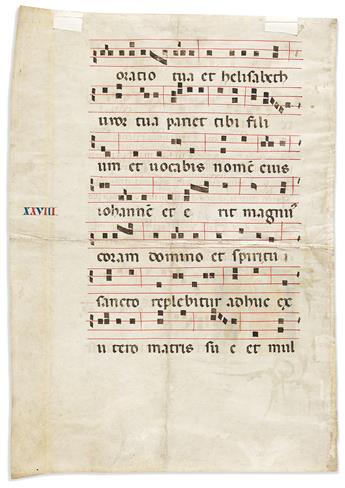 oratio tua et helisabeth
uxor tua pariet tibi fili
um et vocabis nomē eius
XXVIII
iohannē et e rit magnu᾽
coram domino et spiritu
sancto replebitur adhuc ex
u tero matris su e et mul